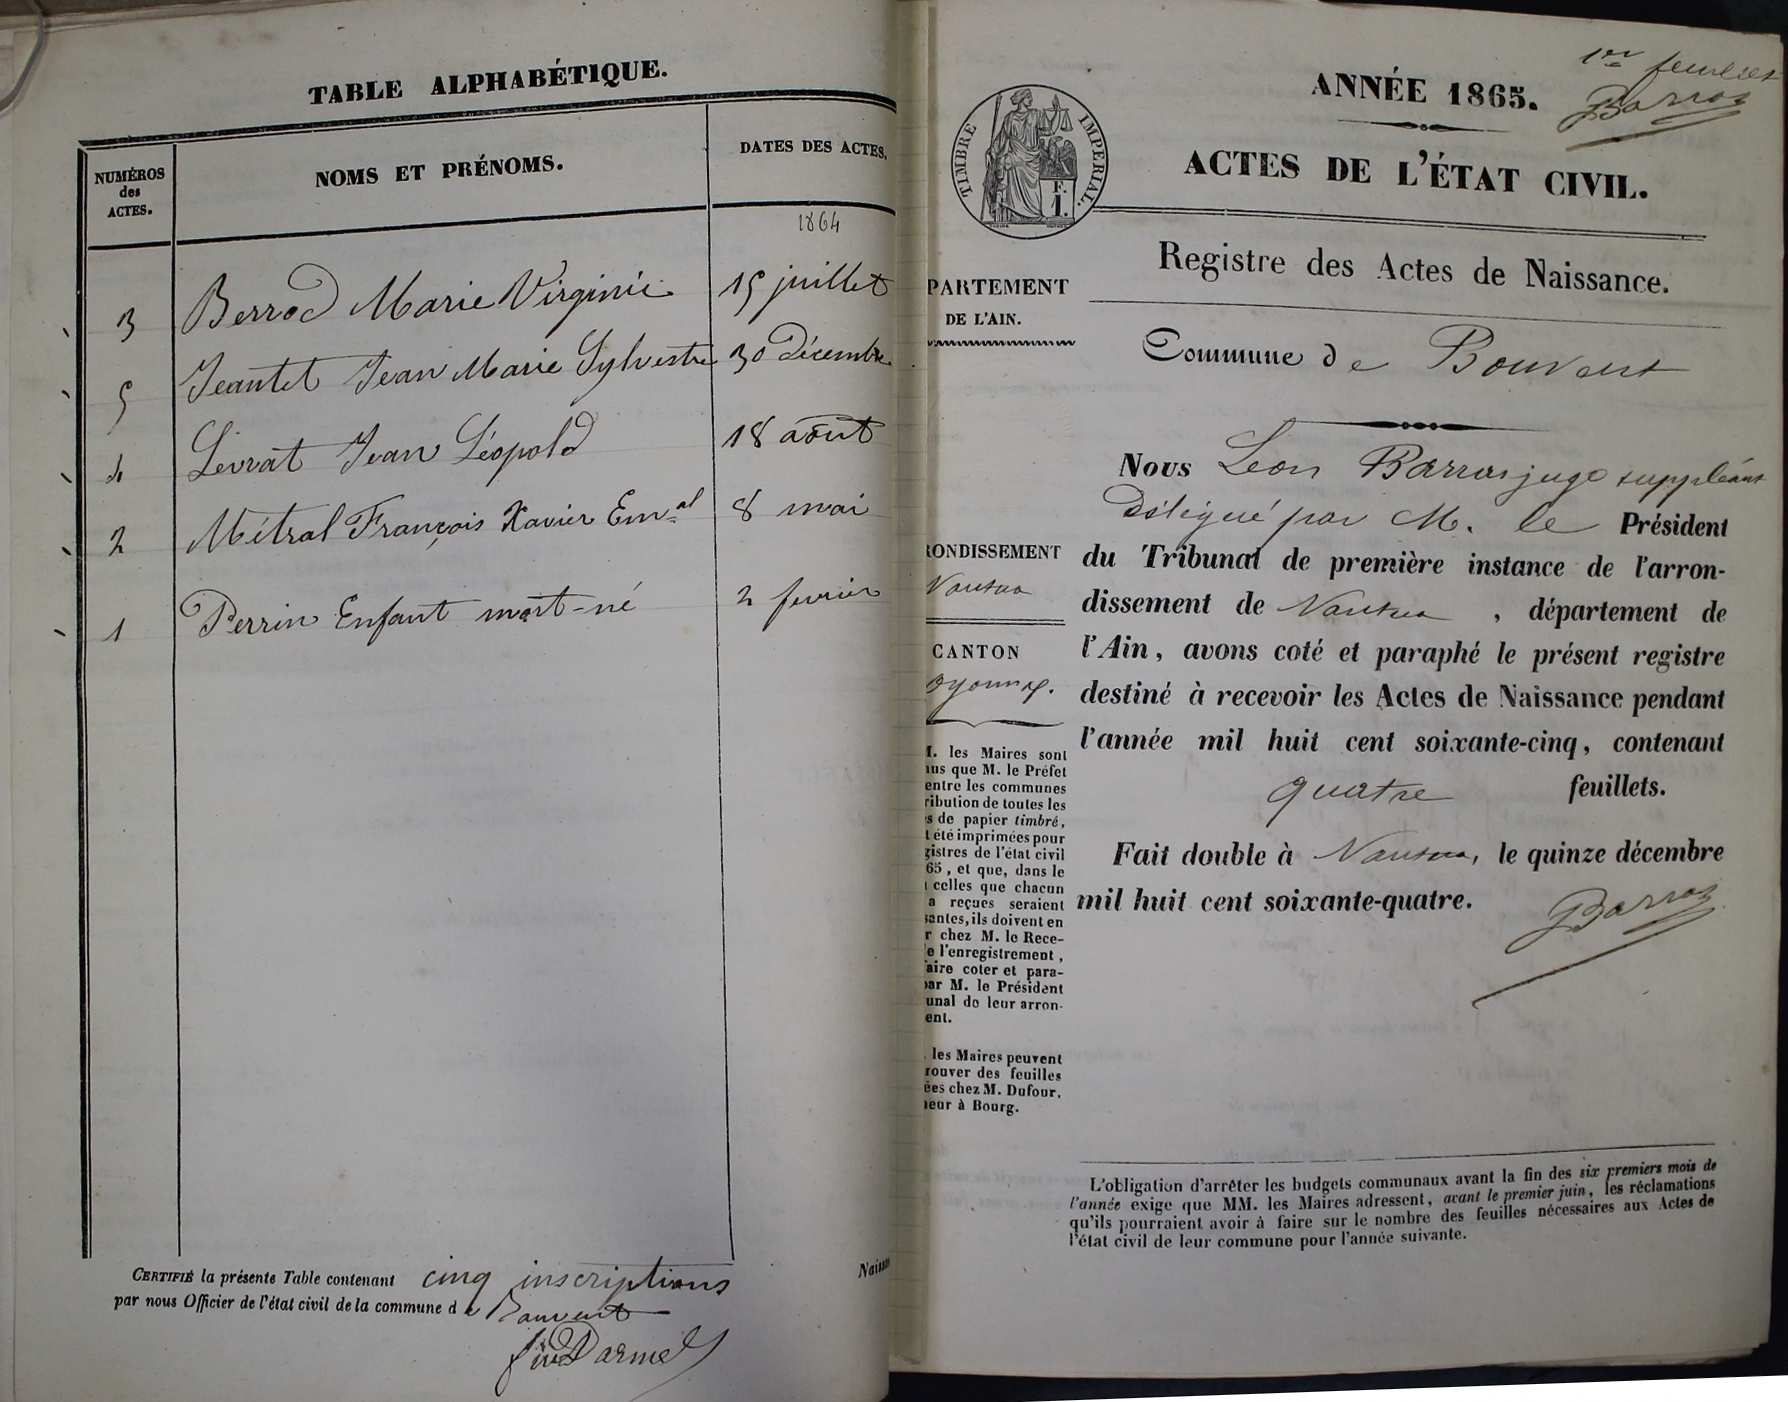 TABLE ALPHABÉTIQUE.
NUMÉROS
des
ACTES.
NOMS ET PRÉNOMS.
DATES DES ACTES.
1864
3 Berrod Marie Virginie 15 juillet
5 Jeantet Jean Marie Sylvestre 30 Décembre
4 Levrat Jean Léopold 18 août
2 Métral François Xavier Em.el 8 mai
1 Perrin Enfant mort-né 2 fevrier
CERTIFIÉ la présente Table contenant cinq inscriptions
par nous Officier de l'état civil de la commune de Bouvent
Naissan
1er feuillet
Barras
ANNÉE 1865.
TIMBRE IMPERIAL.
F.
1.
ACTES DE L'ÉTAT CIVIL.
Registre des Actes de Naissance.
PARTEMENT
DE L'AIN.
Commune de Bouvent
Nous Leon Barras juge suppléant
Délégué par M. le Président
du Tribunal de première instance de l'arron-
dissement de Nantua, département de
l'Ain, avons coté et paraphé le présent registre
destiné à recevoir les Actes de Naissance pendant
l'année mil huit cent soixante-cinq, contenant
quatre feuillets.
Fait double à Nantua, le quinze décembre
mil huit cent soixante-quatre.
Barras
RONDISSEMENT
Nantua
CANTON
oyonnax.
M. les Maires sont
nus que M. le Préfet
entre les communes
ribution de toutes les
s de papier timbré,
t été imprimées pour
gistres de l'état civil
65, et que, dans le
celles que chacun
a reçues seraient
santes, ils doivent en
r chez M. le Rece-
e l'enregistrement,
aire coter et para-
par M. le Président
unal de leur arron-
ent.
. les Maires peuvent
rouver des feuilles
ées chez M. Dufour,
meur à Bourg.
L'obligation d'arrêter les budgets communaux avant la fin des six premiers mois de
l'année exige que MM. les Maires adressent, avant le premier juin, les réclamations
qu'ils pourraient avoir à faire sur le nombre des feuilles nécessaires aux Actes de
l'état civil de leur commune pour l'année suivante.